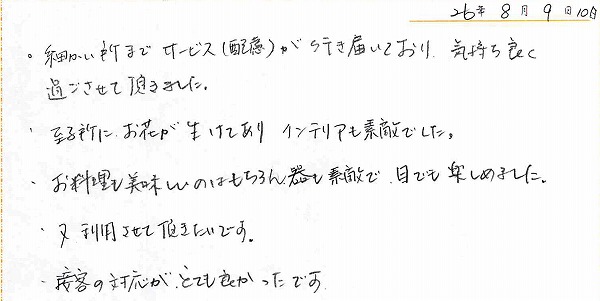 26年 8月 9日10日
。細かい所までサービス(配慮)が行き届いており、気持ち良く
過ごさせて頂きました。
・至る所に、お花が生けてあり インテリアも素敵でした。
・お料理も美味しいのはもちろん、器も素敵で、目でも楽しめました。
・又利用させて頂きたいです。
・接客の対応が、とても良かったです